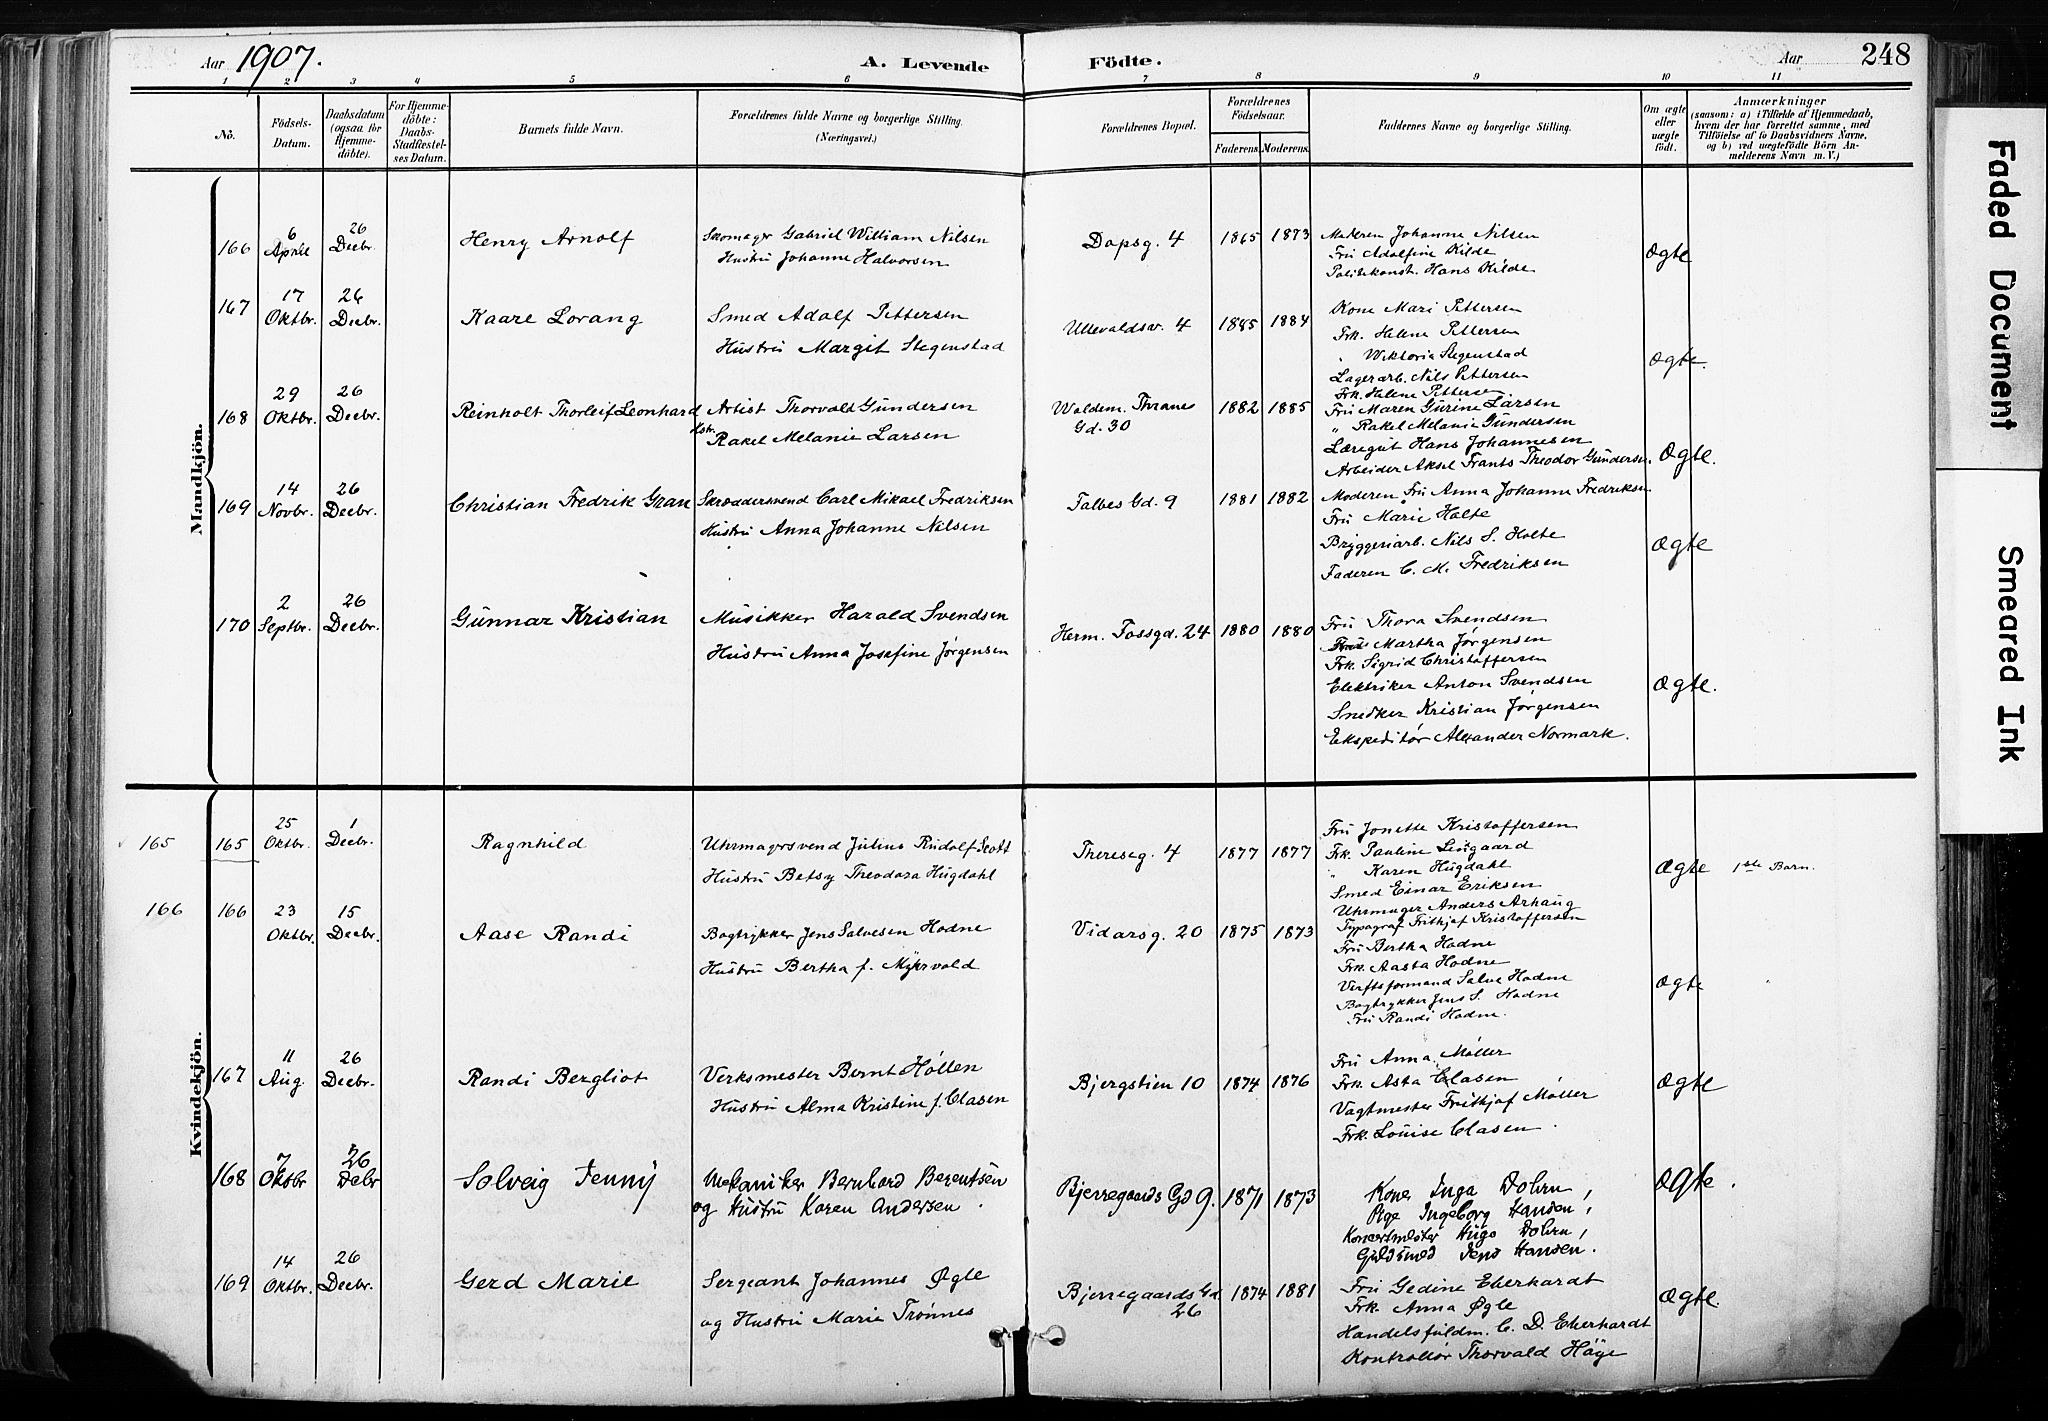 Aar 1907. A. Levende Födte. Aar 248
1 2 3 4 5 6 7 8 9 10 11
No. Födsels-Datum. Daabsdatum (ogsaa for Hjemmedöbte). For Hjemmedöbte: Daabs-Stadfæstelses Datum. Barnets fulde Navn. Forældrenes fulde Navne og borgerlige Stilling. (Næringsvei.) Forældrenes Bopæl. Forældrenes Födselsaar. Faderens. Moderens. Faddernes Navne og borgerlige Stilling. Om ægte eller uægte født. Anmærkninger (saasom: a) i Tilfælde af Hjemmedaab, hvem der har forrettet samme, med Tilföielse af to Daabsvidners Navne, og b) ved uægtefödte Börn Anmelderens Navn m. V.)
Mandkjön.
166 6 April 26 Decbr. Henry Arnolf Skomager Gabriel William Nilsen Dopsg. 4 1865 1873 Moderen Johanne Nilsen
Hustru Johanne Halvorsen Fru Adolfine Kilde Ægte
Politikonst. Hans Kilde
167 17 Oktbr. 26 Decbr. Kaare Lorang Smed Adolf Pettersen Ullevoldsv. 4 1885 1884 Kone Mari Pettersen
Hustru Margit Stegenstad Frk. Helene Pettersen
" Wiktoria Stegenstad Ægte.
Lagerarb. Nils Pettersen
Frk. Helene Pettersen
168 29 Oktbr. 26 Decbr. Reinholt Thorleif Leonhard Artist Thorvalt Gundersen Woldem. Thranes Gd. 30 1882 1885 Fru Maren Gurine Larsen
Hstr. Rakel Melanie Larsen " Rakel Melanie Gundersen
Læregut Hans Johannesen
Arbeider Aksel Frants Theodor Gundersn. Ægte.
169 14 Novbr. 26 Decbr. Christian Fredrik Gran Skræddersvend Carl Mikael Fredriksen Falbes Gd. 9 1881 1882 Moderen Fru Anna Johanne Fredriksen
Hustru Anna Johanne Nilsen Fru Marie Holte
Bryggeriarb. Nils S. Holte Ægte
Faderen C. M. Fredriksen
170 2 Septbr. 26 Decbr. Gunnar Kristian Musikker Harald Svendsen Herm. Fossgd. 24 1880 1880 Fru Thora Svendsen
Hustru Anna Josefine Jørgensen Fru Martha Jørgensen
Frk. Sigrid Christoffersen
Elektriker Anton Svendsen Ægte.
Snedker Kristian Jørgensen
Ekspeditør Alexander Normark.
Kvindekjön.
165 165 25 Oktbr. 1 Decbr. Ragnhild Uhrmagersvend Julius Rudolf Scott Theresesg. 4 1877 1877 Fru Jonette Kristoffersen
Hustru Betsy Theodora Hugdahl Frk. Pauline Lengaard
" Karen Hugdahl Ægte 1ste Barn.
Smed Einar Eriksen
Uhrmager Anders Arhaug
166 166 23 Oktbr. 15 Decbr. Aase Randi Bogtrykker Jens Salvesen Hodne Vidarsg. 20 1875 1873 Typograf Frithjof Kristoffersen
Hustru Bertha f. Myrvold Fru Bertha Hodne
Frk. Aasta Hodne
Verftsformand Salve Hodne Ægte "
Bogtrykker Jens S. Hodne
Fru Randi Hodne.
167 11 Aug. 26 Decbr. Randi Bergliot Verksmester Bernt Høllen Bjergstien 10 1874 1876 Fru Anna Møller
Hustru Alma Kristine f. Clasen Frk. Asta Clasen Ægte
Vagtmester Frithjof Møller
Frk. Louise Clasen.
168 7 Oktbr 26 Debr Solveig Jenny Mekaniker Bernhard Berentsen Bjerregaards Gd 9. 1871 1873 Kone Inga Dohrn, Ægte.
og Hustru Karen Andersen. Pige Ingeborg Hansen,
Koncertmester Hugo Dohrn,
Guldsmed Jens Hansen.
169 14 Oktbr. 26 Decbr. Gerd Marie Sergeant Johannes Øgle Bjerregaards Gd. 26 1874 1881 Fru Gedine Eberhardt
og Hustru Marie Trønnes Frk. Anna Øgle Ægte.
Handelsfuldm. C. D. Eberhardt
Kontrollør Thorvald Høye
Faded Document
Smeared Ink